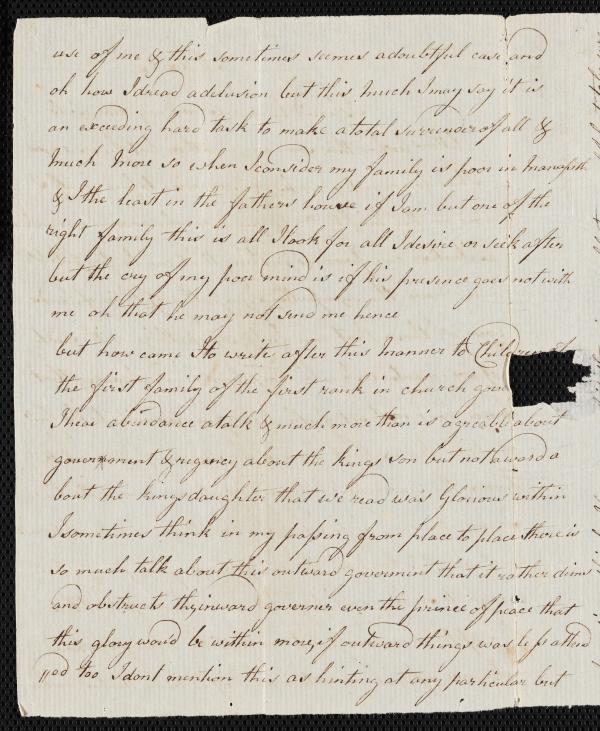 use of me & this sometimes seemes a doubtful case and
oh how I dread a delusion but this much I may say it is
an exceeding hard task to make a total surrender of all &
much more so when I consider my family is poor in manasseth
& I the least in the fathers house if I am but one of the
right family this is all I look for all I desire or seek after
but the cry of my poor mind is if his presence goes not with
me oh that he may not send me hence
but how came I to write after this manner to Children of
the first family of the first rank in church gov
I hear abundance a talk & much more than is agreable about
goverment & regency about the kings son but not a word a
bout the kings daughter that we read was Glorious within
I sometimes think in my passing from place to place there is
so much talk about this outward goverment that it rather dims
and obstructs the inward governer even the prince of peace that
this glory would be within more, if outward things was less attend
"ed too I dont mention this as hinting at any particular but